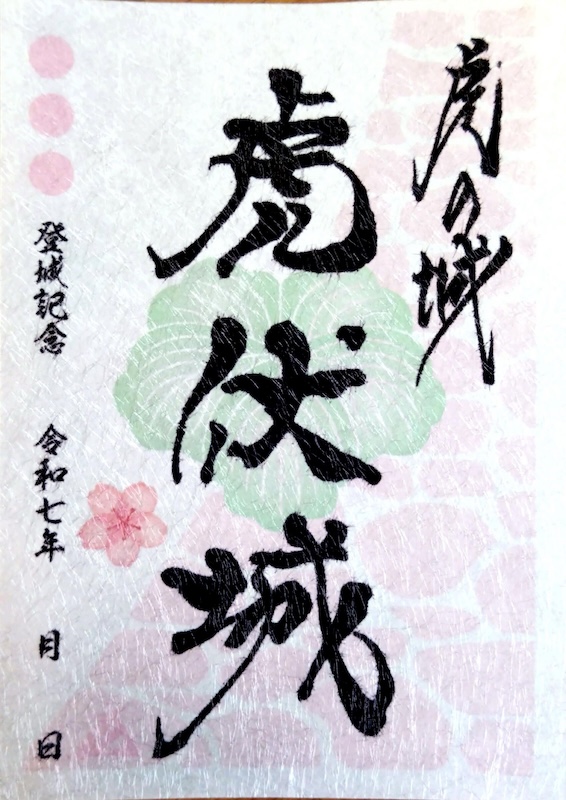 虎の城
虎伏城
登城記念 令和七年 月 日